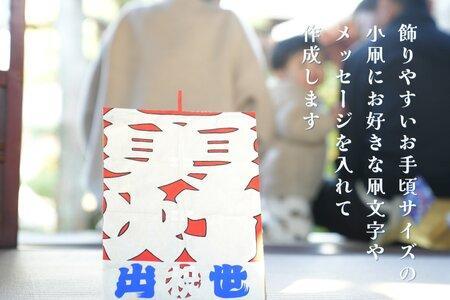 飾りやすいお手頃サイズの
小凧にお好きな凧文字や
メッセージを入れて
作成します
出 世